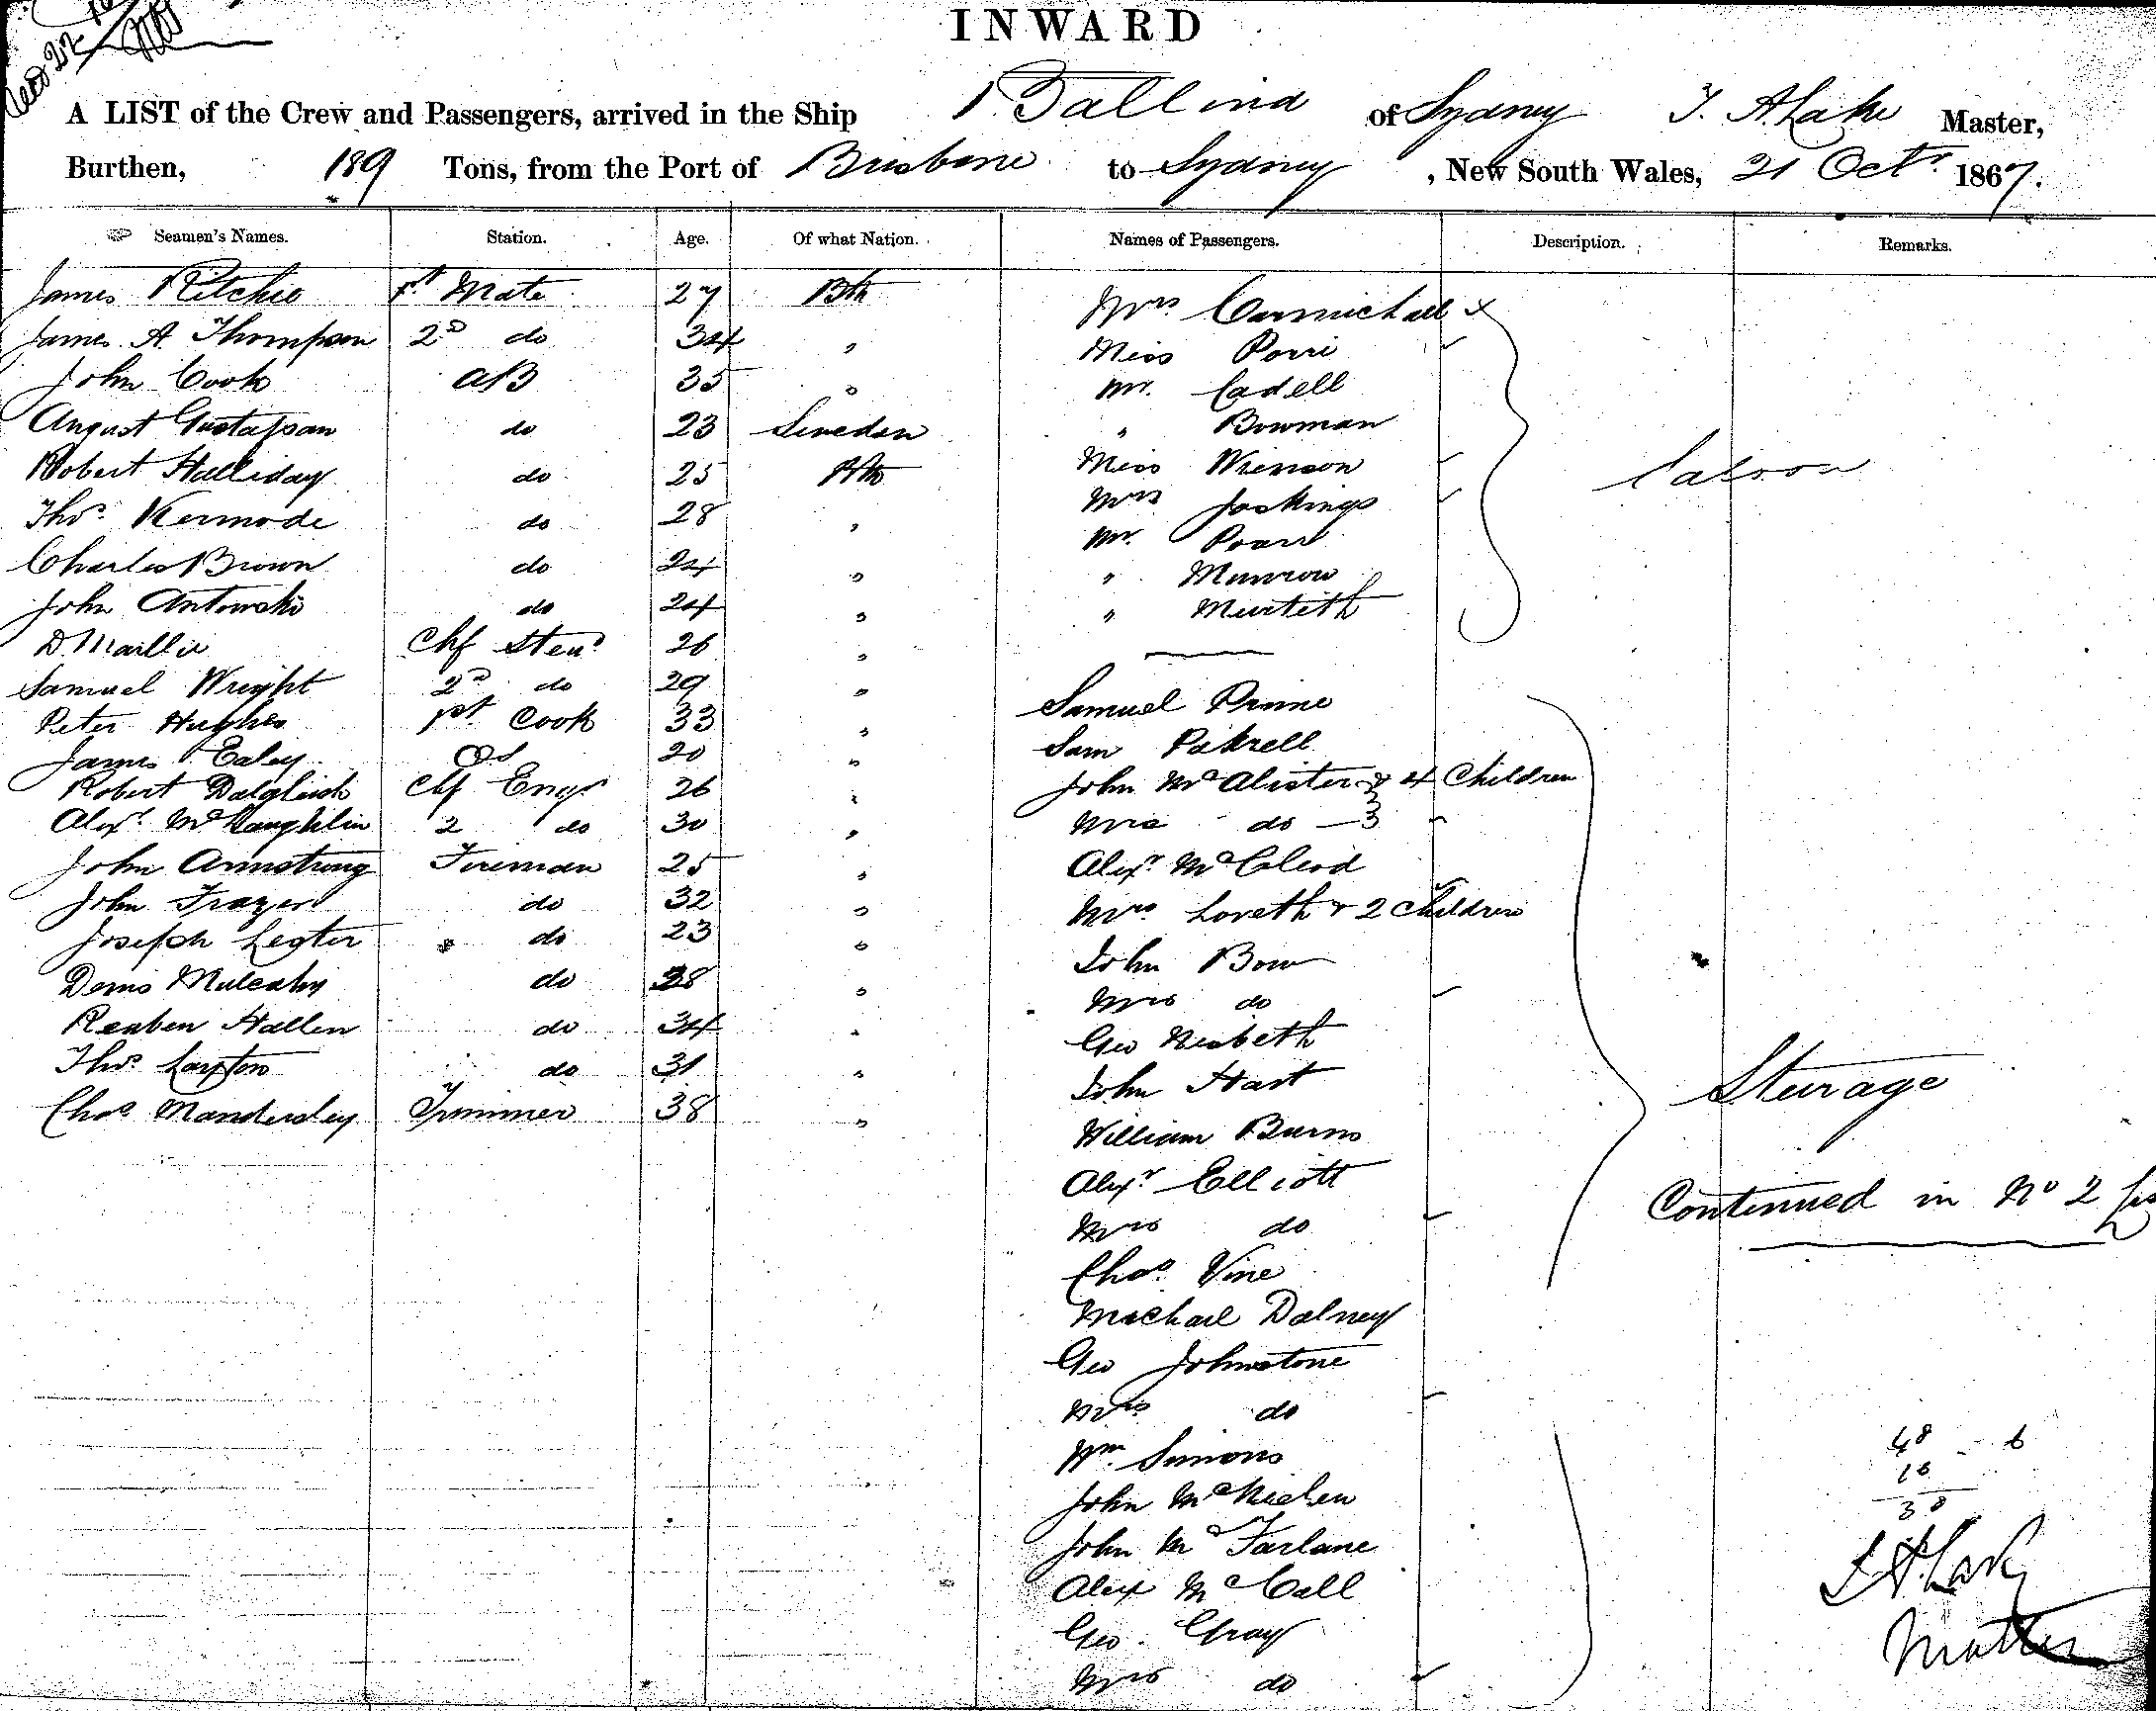 INWARD
A LIST of the Crew and Passengers, arrived in the Ship Ballina of Sydney T. A Lake Master,
Burthen, 189 Tons, from the Port of Brisbane to Sydney, New South Wales, 21 Octr. 1867.
Seamen's Names. Station. Age. Of what Nation. Names of Passengers. Description. Remarks.
James Ritchie 1st Mate 27 Bth Mrs Carmichael x
James A Thompson 2D do 34 " Miss Porri
John Cook AB 35 " Mr. Cadell
August Gustafson do 23 Sweden " Bowman
Robert Halliday do 25 Bth Miss Wrenson
Saloon
Thos. Kermode do 28 " Mrs Joskings
Mr.
Charles Brown do 24 " " Munrow
John Antowski do 24 " " Murteth
D. Maillie Chf Stewd 26 "
Samuel Wright 2D do 29 " Samuel Prime
Peter Hughes 1st Cook 33 " Sam Pakrell
James Ealey OS 20 " John McAlister & 4 Children
Robert Dalgleish Chf Engr 26 "
Alexr. McLaughlin 2 do 30 " Mrs do 3
John Armstrong Fireman 25 " Alexr. McCleod
John Frazer do 32 " Mrs Loveth & 2 Children
Joseph Legter do 23 " John Bow
Denis Mulcahy do 28 " Mrs do
Reuben Hallen do 34 " Geo Nesbeth
Thos. Layton do 31 " John Hast
Sturage
Chas Mandersley Trimmer 38 " William Burns
Alexr. Elliott
Continued in No 2
Mrs do
Chas. Vine
Michael Dalney
Geo Johnstone
Mrs do
Wm. Simons
48 - 6
10
38
John
John McFarlane
Alex McCall
T A Lake
Geo. Gray
Master
Mrs do